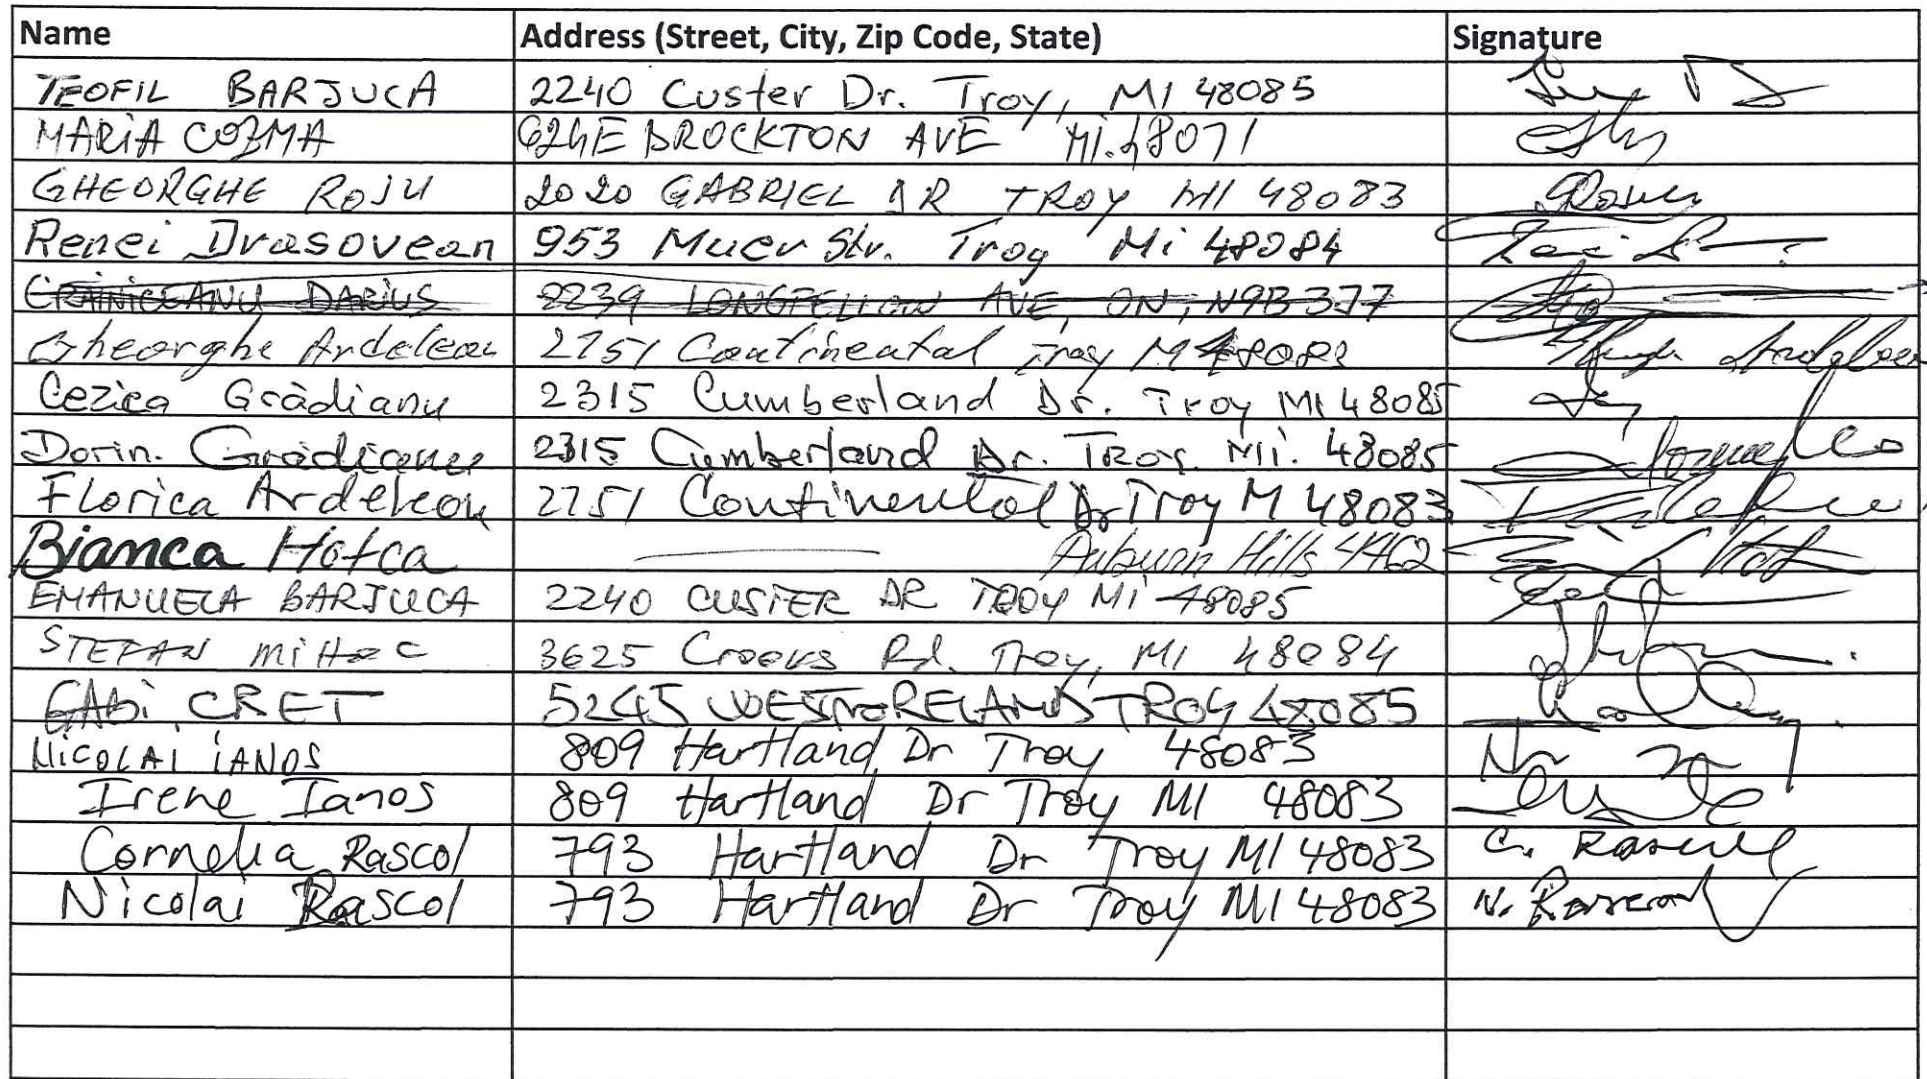 Name Address (Street, City, Zip Code, State) Signature
TEOFIL BARJUCA 2240 Custer Dr. Troy, MI 48085
MARIA COZMA 624E BROCKTON AVE Mi. 48071
GHEORGHE ROJU 2020 GABRIEL DR TROY MI 48083
Renei Drasovean 953 Str. Troy Mi 48084
CRAINICEANU DARIUS 2239 LONGFELLOW AVE, ON, N9B 3J7
Gheorghe Ardelean 2751 Continental Troy M 48083 Ardelean
Cezica Grădianu 2315 Cumberland Dr. Troy MI 48085
Dorin. Grădianu 2315 Cumberland Dr. Troy. Mi. 48085
Florica Ardelean 2751 Continental Dr Troy M 48083
Bianca Hotca Auburn Hills
EMANUELA BARJUCA 2240 CUSTER DR TROY Mi 48085
STEFAN MiHoC 3625 Crooks Rd. Troy, MI 48084
GABi CRET 5245 WESTMORELAND TROY 48085
NICOLAI IANOS 809 Hartland Dr Troy 48083
Irene Ianos 809 Hartland Dr Troy MI 48083
Cornelia Rascol 793 Hartland Dr Troy MI 48083 C. Rascol
Nicolai Rascol 793 Hartland Dr Troy MI 48083 N.